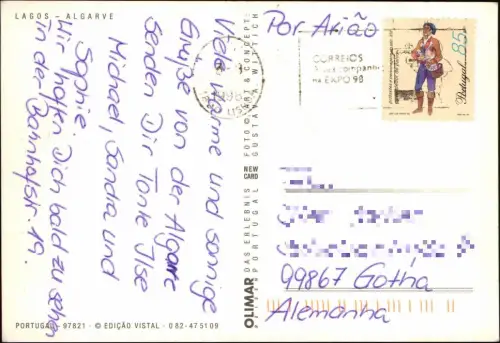 LAGOS - ALGARVE
Viele warme und sonnige
Grüße von der Algarve
senden Dir Tante Ilse
Michael, Sandra und
Sophie.
Wir hoffen Dich bald zu sehen
in der Bahnhofstr. 19.
PORTUGAL 97821 · © EDIÇÃO VISTAL · 082-475109
OLIMAR DAS ERLEBNIS PORTUGAL
NEW CARD
FOTO ART & CONCEPT:
GUSTAV A. WITTICH
Por Avião
CORREIOS
na EXPO 98
85
Portugal
99867 Gotha
Alemanha